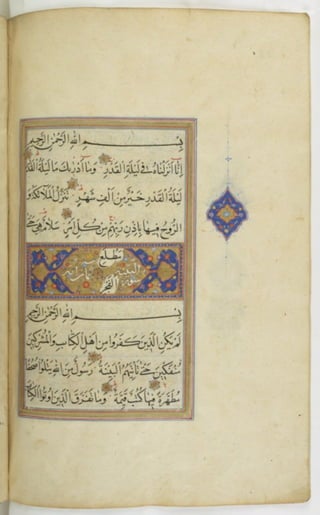 بِسْمِ اللهِ الرَّحْمٰنِ الرَّحِيمِ
اِنَّا اَنْزَلْنَاهُ فِي لَيْلَةِ الْقَدْرِ وَمَا اَدْرٰيكَ مَا لَيْلَةُ الْقَدْرِ
لَيْلَةُ الْقَدْرِ خَيْرٌ مِنْ اَلْفِ شَهْرٍ تَنَزَّلُ الْمَلَائِكَةُ وَ
الرُّوحُ فِيهَا بِاِذْنِ رَبِّهِمْ مِنْ كُلِّ اَمْرٍ سَلَامٌ هِيَ حَتّٰى
مَطْلَعِ
سورة البينة
الْفَجْرِ
بِسْمِ اللهِ الرَّحْمٰنِ الرَّحِيمِ
لَمْ يَكُنِ الَّذِينَ كَفَرُوا مِنْ اَهْلِ الْكِتَابِ وَالْمُشْرِكِينَ
مُنْفَكِّينَ حَتّٰى تَأْتِيَهُمُ الْبَيِّنَةُ رَسُولٌ مِنَ اللهِ يَتْلُوا صُحُفًا
مُطَهَّرَةً فِيهَا كُتُبٌ قَيِّمَةٌ وَمَا تَفَرَّقَ الَّذِينَ اُوتُوا الْكِتَابَ